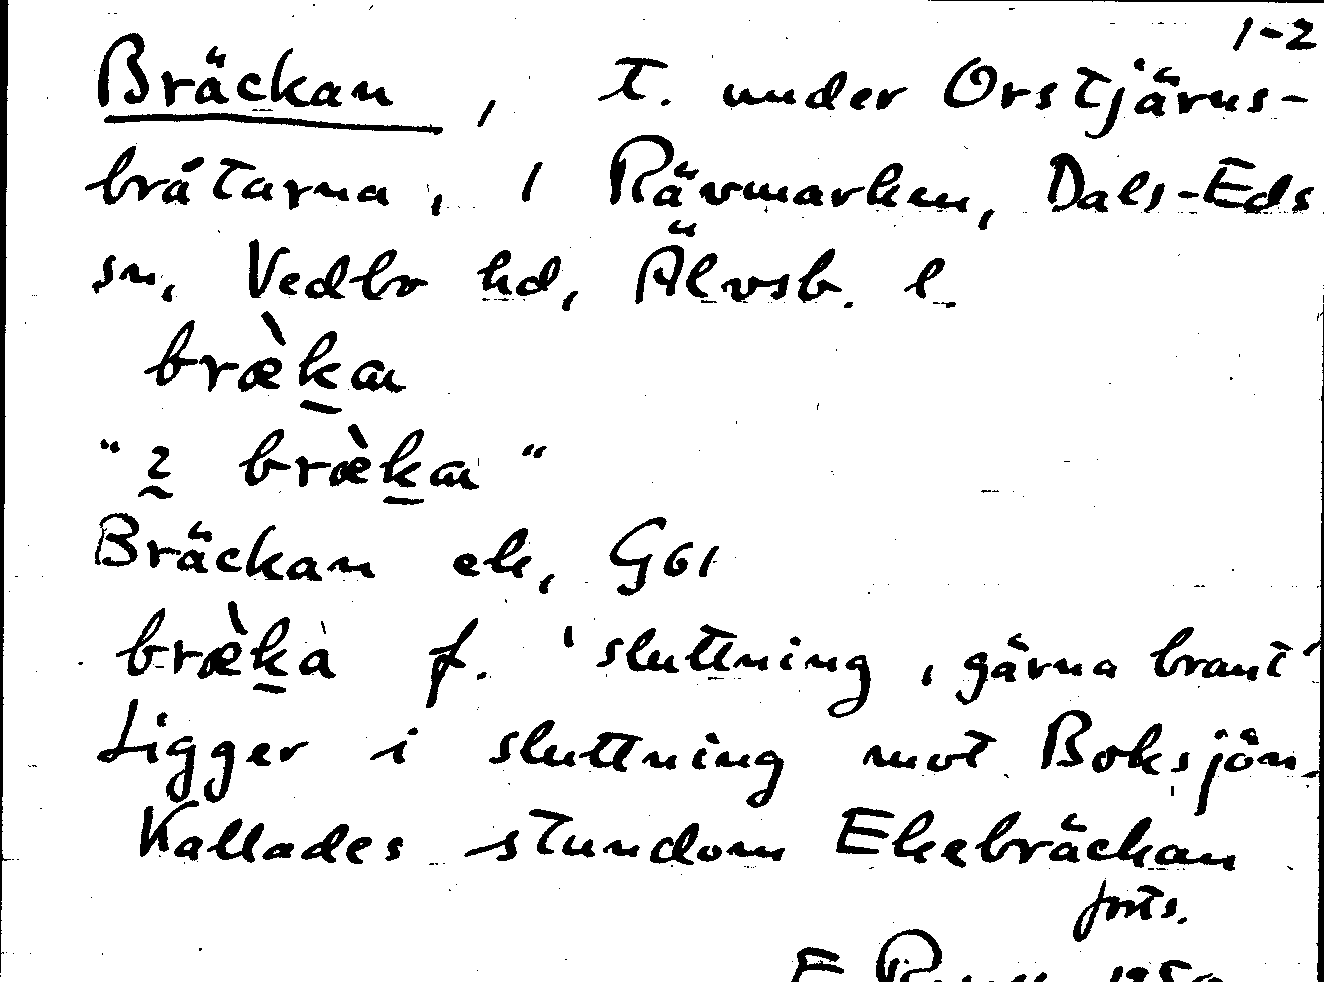 1-2
Bräckan, t. under Orstjärns-
bråtarna, 1 Rävmarken, Dals-Eds
sn, Vedbo hd, Älvsb. l.
bræ̀k̲an
"2 bræ̀k̲an"
Bräckan ek, G61
bræ̀k̲a f. 'sluttning, gärna brant'
Ligger i sluttning mot Boksjön.
Kallades stundom Ekebräckan
forts.
1950